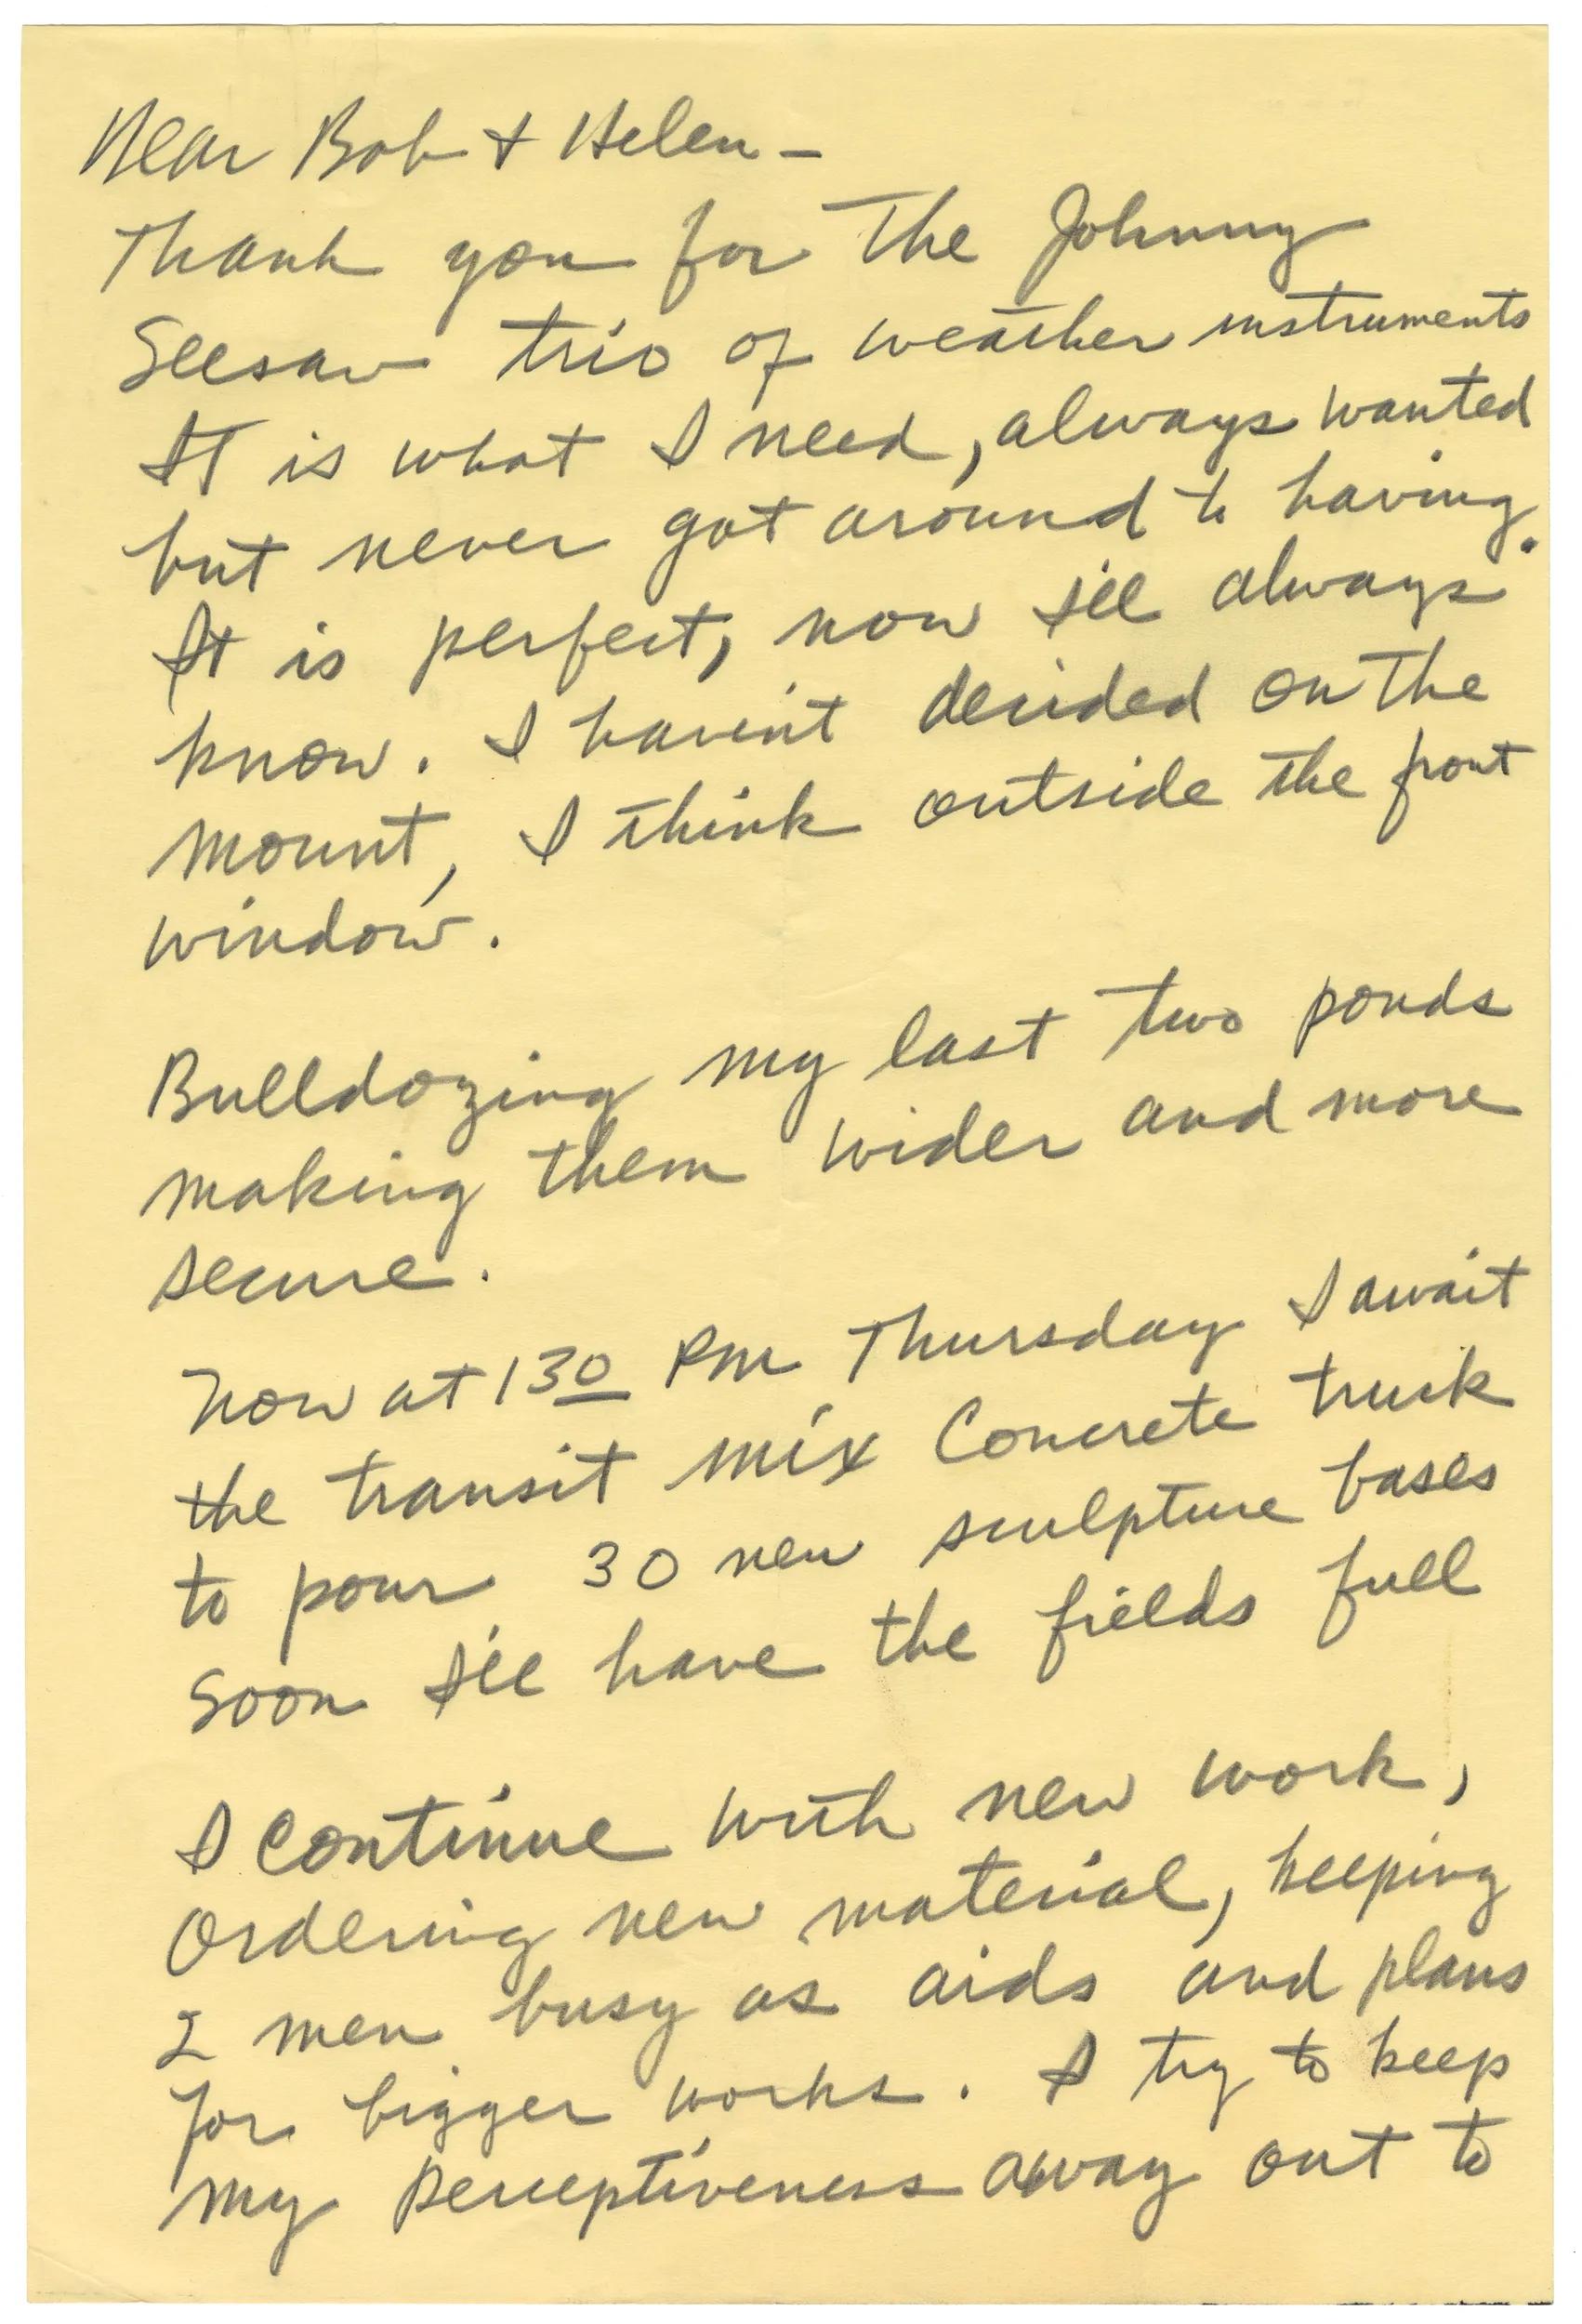 Dear Bob & Helen –
Thank you for The Johnny
Seesaw trio of weather instruments
It is what I need, always wanted
but never got around to having.
It is perfect, now I'll always
know. I haven't decided on the
mount, I think outside the front
window.
Bulldozing my last two ponds
making them wider and more
secure.
Now at 130 PM Thursday I await
the transit mix Concrete truck
to pour 30 new sculpture bases
Soon I'll have the fields full
I continue with new work,
Ordering new material, keeping
2 men busy as aids and plans
for bigger works. I try to keep
my perceptiveness away out to